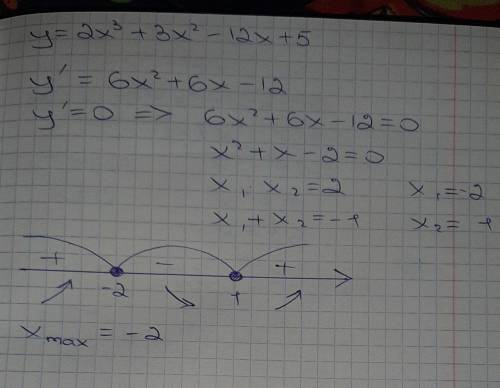 y = 2x³ + 3x² - 12x + 5
y' = 6x² + 6x - 12
y' = 0 => 6x² + 6x - 12 = 0
x² + x - 2 = 0
x₁ · x₂ = 2 x₁ = -2
x₁ + x₂ = -1 x₂ = 1
+ - +
-2 1
x max = -2